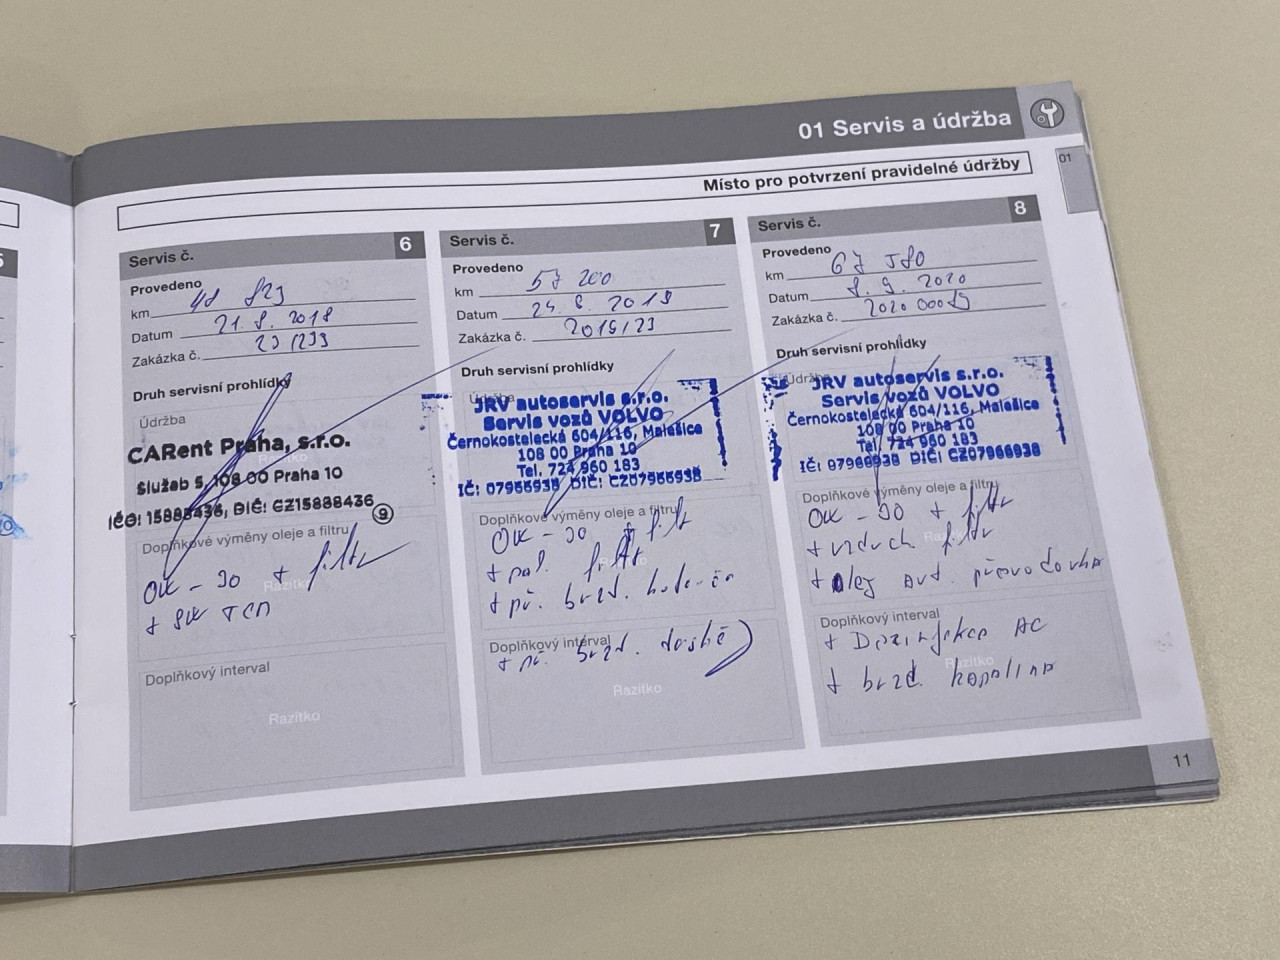 01 Servis a údržba
01
Místo pro potvrzení pravidelné údržby
Servis č. 6
Provedeno
km 48 823
Datum 21. 8. 2018
Zakázka č. 231233
Druh servisní prohlídky
Údržba
CARent Praha, s.r.o.
Služeb 5, 108 00 Praha 10
IČO: 15888436, DIČ: CZ15888436
9
Doplňkové výměny oleje a filtru
Razítko
+ filtr
Doplňkový interval
Razítko
Servis č. 7
Provedeno
km 57 200
Datum
Zakázka č.
Druh servisní prohlídky
Údržba
JRV autoservis s.r.o.
Servis vozů VOLVO
Černokostelecká 604/116, Malešice
108 00 Praha 10
Tel. 724 960 183
IČ: 07966938 DIČ: CZ07966938
Doplňkové výměny oleje a filtru
+ filtr
+ pal. filtr
+ př. brzd.
Doplňkový interval
+ př. brzd. desky
Razítko
Servis č. 8
Provedeno
km 67 580
Datum 8. 9. 2020
Zakázka č.
Druh servisní prohlídky
Údržba
JRV autoservis s.r.o.
Servis vozů VOLVO
Černokostelecká 604/116, Malešice
108 00 Praha 10
Tel. 724 960 183
IČ: 07966938 DIČ: CZ07966938
Doplňkové výměny oleje a filtru
+ filtr
+ vzduch. filtr
+ olej aut. převodovka
Doplňkový interval
+ Dezinfekce AC
Razítko
+ brzd. kapalina
11